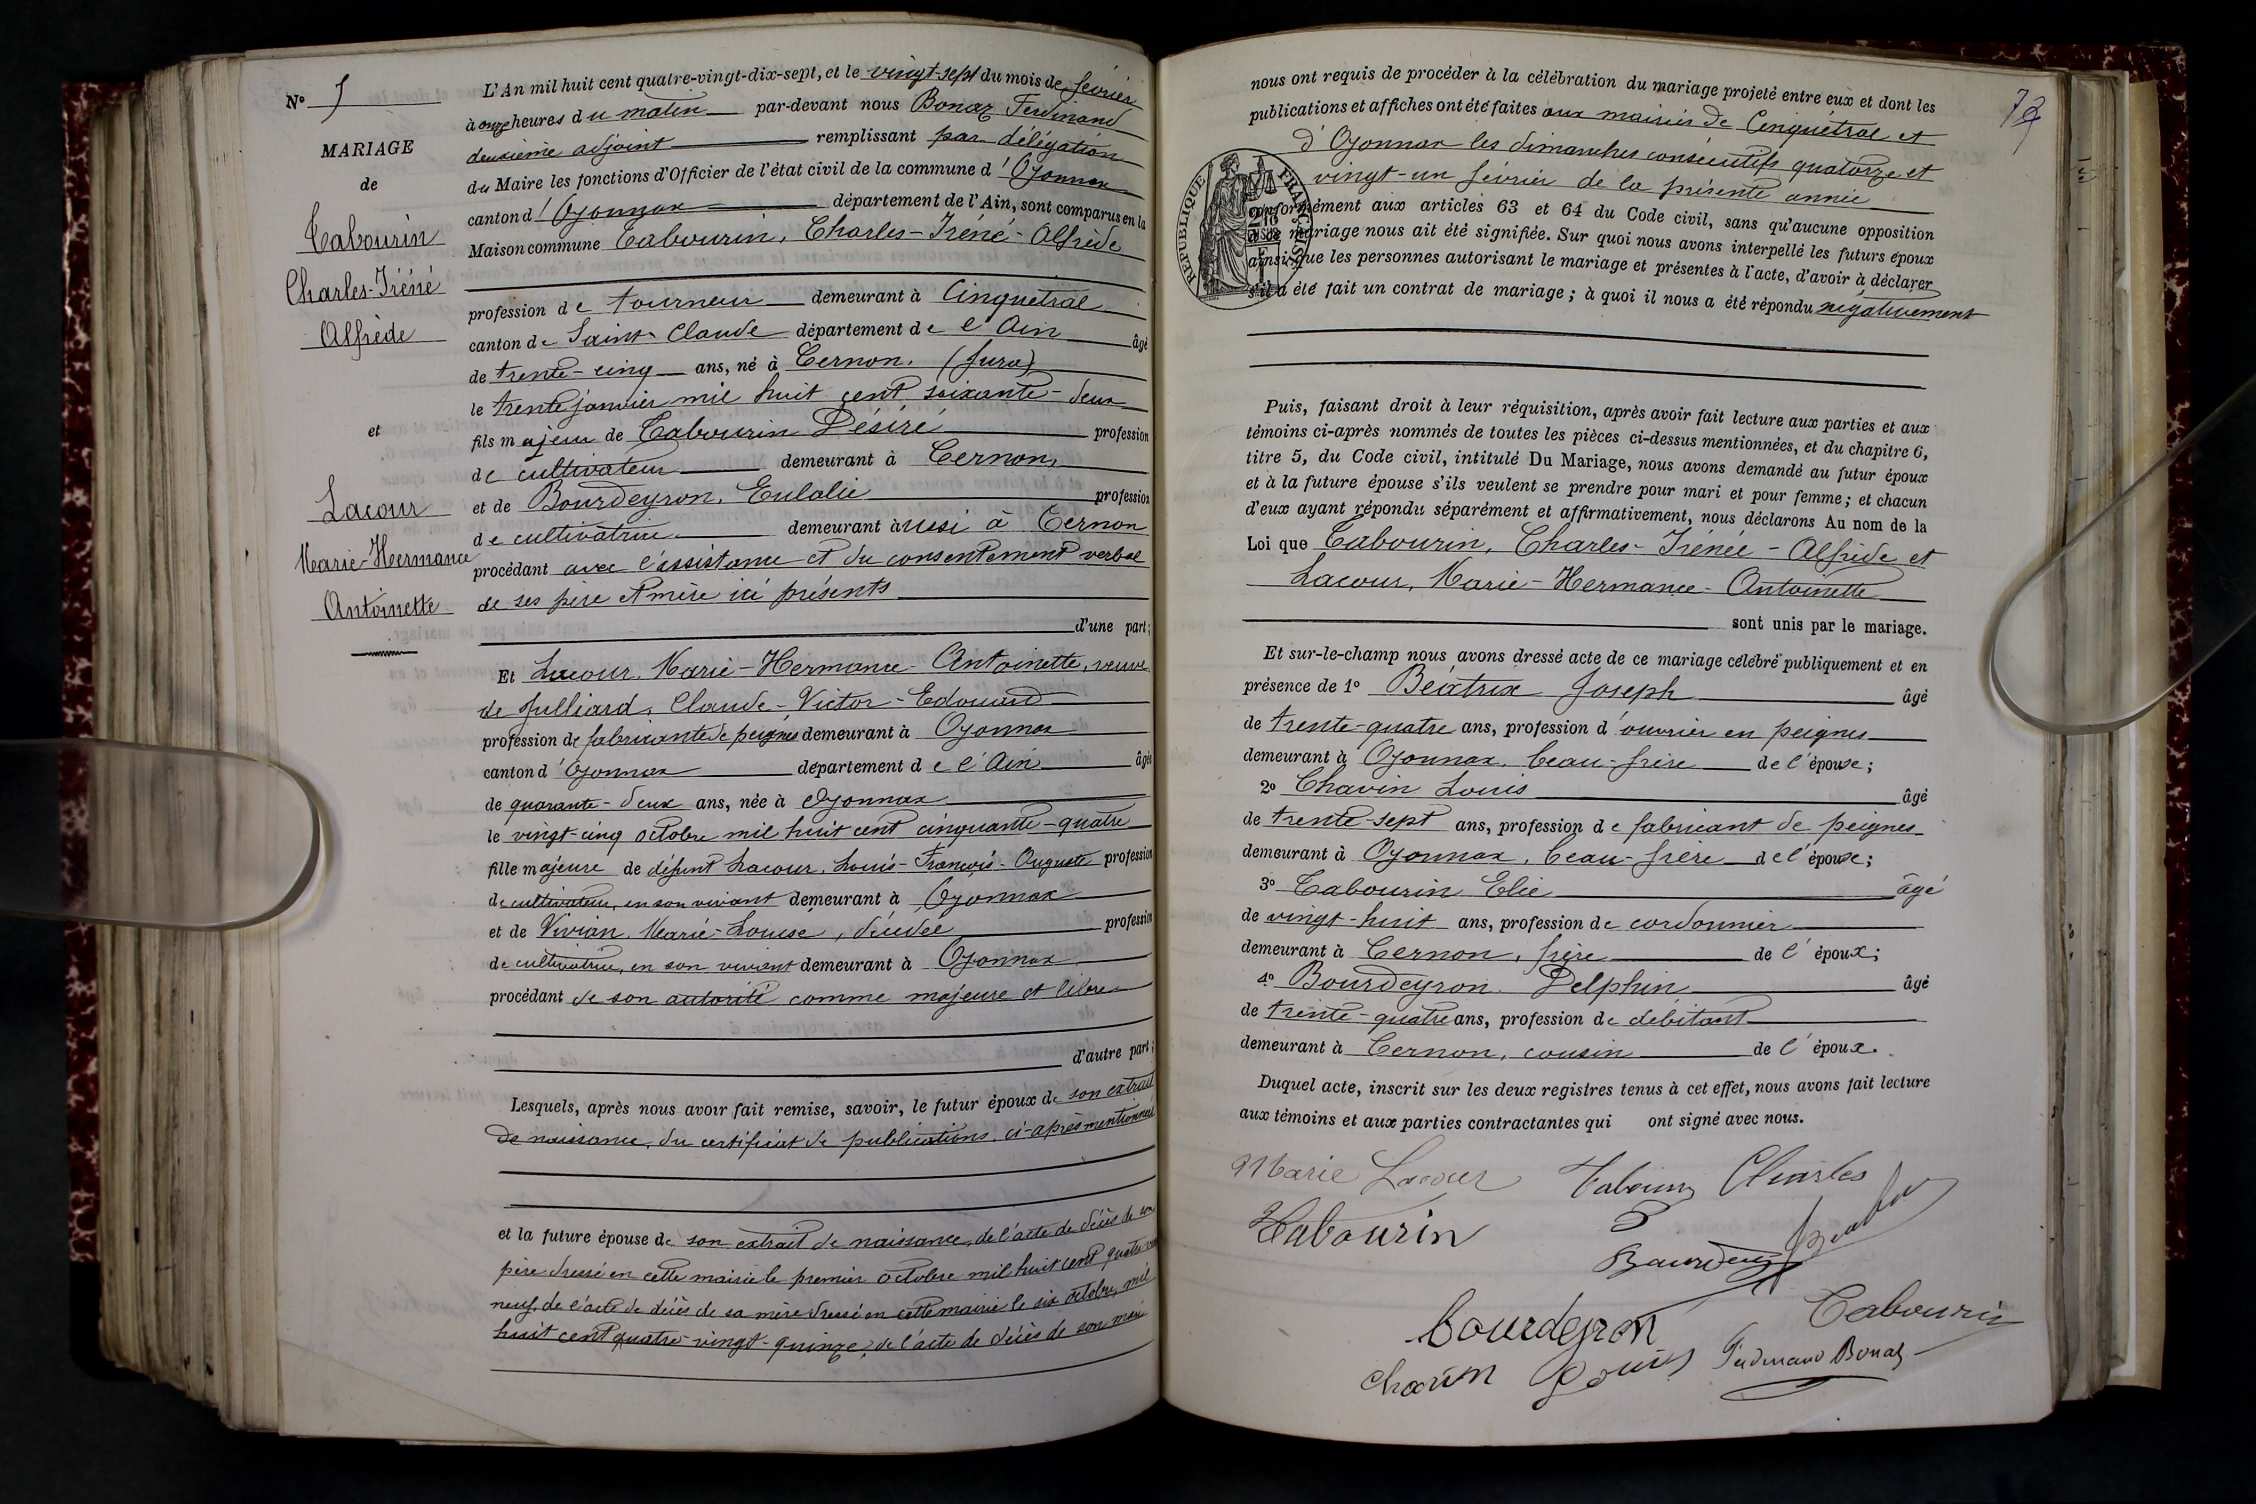 N° 5
MARIAGE
de
Tabourin
Charles-Iréné
Alfrède
et
Lacour
Marie-Hermance
Antoinette
L'An mil huit cent quatre-vingt-dix-sept, et le vingt-sept du mois de février
à onze heures du matin par-devant nous Bonaz Ferdinand
deuxième adjoint remplissant par délégation
du Maire les fonctions d'Officier de l'état civil de la commune d'Oyonnax
canton d'Oyonnax département de l'Ain, sont comparus en la
Maison commune Tabourin, Charles-Iréné-Alfrède
profession de tourneur demeurant à Cinquétral
canton de Saint-Claude département de l'Ain âgé
de trente-cinq ans, né à Cernon. (Jura)
le trente janvier mil huit cent soixante-deux
fils majeur de Tabourin Désiré profession
de cultivateur demeurant à Cernon,
et de Bourdeyron, Eulalie profession
de cultivatrice demeurant aussi à Cernon
procédant avec l'assistance et du consentement verbal
de ses père et mère ici présents
d'une part;
Et Lacour, Marie-Hermance-Antoinette, veuve
de Julliard, Claude-Victor-Edouard
profession de fabricante de peignes demeurant à Oyonnax
canton d'Oyonnax département de l'Ain âgée
de quarante-deux ans, née à Oyonnax
le vingt-cinq octobre mil huit cent cinquante-quatre
fille majeure de défunt Lacour, Louis-François-Auguste profession
de cultivateur, en son vivant demeurant à Oyonnax
et de Vivian, Marie-Louise, décédée profession
de cultivatrice, en son vivant demeurant à Oyonnax
procédant de son autorité comme majeure et libre
d'autre part;
Lesquels, après nous avoir fait remise, savoir, le futur époux de son extrait
de naissance, du certificat de publications ci-après mentionnées
et la future épouse de son extrait de naissance, de l'acte de décès de son
père dressé en cette mairie le premier octobre mil huit cent quatre-vingt
neuf, de l'acte de décès de sa mère dressé en cette mairie le six octobre mil
huit cent quatre-vingt-quinze, de l'acte de décès de son mari
nous ont requis de procéder à la célébration du mariage projeté entre eux et dont les
publications et affiches ont été faites aux mairies de Cinquétral et
d'Oyonnax les dimanches consécutifs quatorze et
vingt-un février de la présente année
RÉPUBLIQUE FRANÇAISE
conformément aux articles 63 et 64 du Code civil, sans qu'aucune opposition
à ce mariage nous ait été signifiée. Sur quoi nous avons interpellé les futurs époux
ainsi que les personnes autorisant le mariage et présentes à l'acte, d'avoir à déclarer
s'il a été fait un contrat de mariage; à quoi il nous a été répondu négativement
Puis, faisant droit à leur réquisition, après avoir fait lecture aux parties et aux
témoins ci-après nommés de toutes les pièces ci-dessus mentionnées, et du chapitre 6,
titre 5, du Code civil, intitulé Du Mariage, nous avons demandé au futur époux
et à la future épouse s'ils veulent se prendre pour mari et pour femme; et chacun
d'eux ayant répondu séparément et affirmativement, nous déclarons Au nom de la
Loi que Tabourin, Charles-Irénée-Alfrède et
Lacour, Marie-Hermance-Antoinette
sont unis par le mariage.
Et sur-le-champ nous avons dressé acte de ce mariage célébré publiquement et en
présence de 1° Béatrix Joseph âgé
de trente-quatre ans, profession d'ouvrier en peignes
demeurant à Oyonnax, beau-frère de l'épouse;
2° Chavin Louis âgé
de trente-sept ans, profession de fabricant de peignes
demeurant à Oyonnax, beau-frère de l'épouse;
3° Tabourin Elie âgé
de vingt-huit ans, profession de cordonnier
demeurant à Cernon, frère de l'époux;
4° Bourdeyron Delphin âgé
de trente-quatre ans, profession de débitant
demeurant à Cernon, cousin de l'époux.
Duquel acte, inscrit sur les deux registres tenus à cet effet, nous avons fait lecture
aux témoins et aux parties contractantes qui ont signé avec nous.
Marie Lacour Tabourin Charles
Tabourin
Bourdeyron
Tabourin
Chavin Louis Ferdinand Bonaz